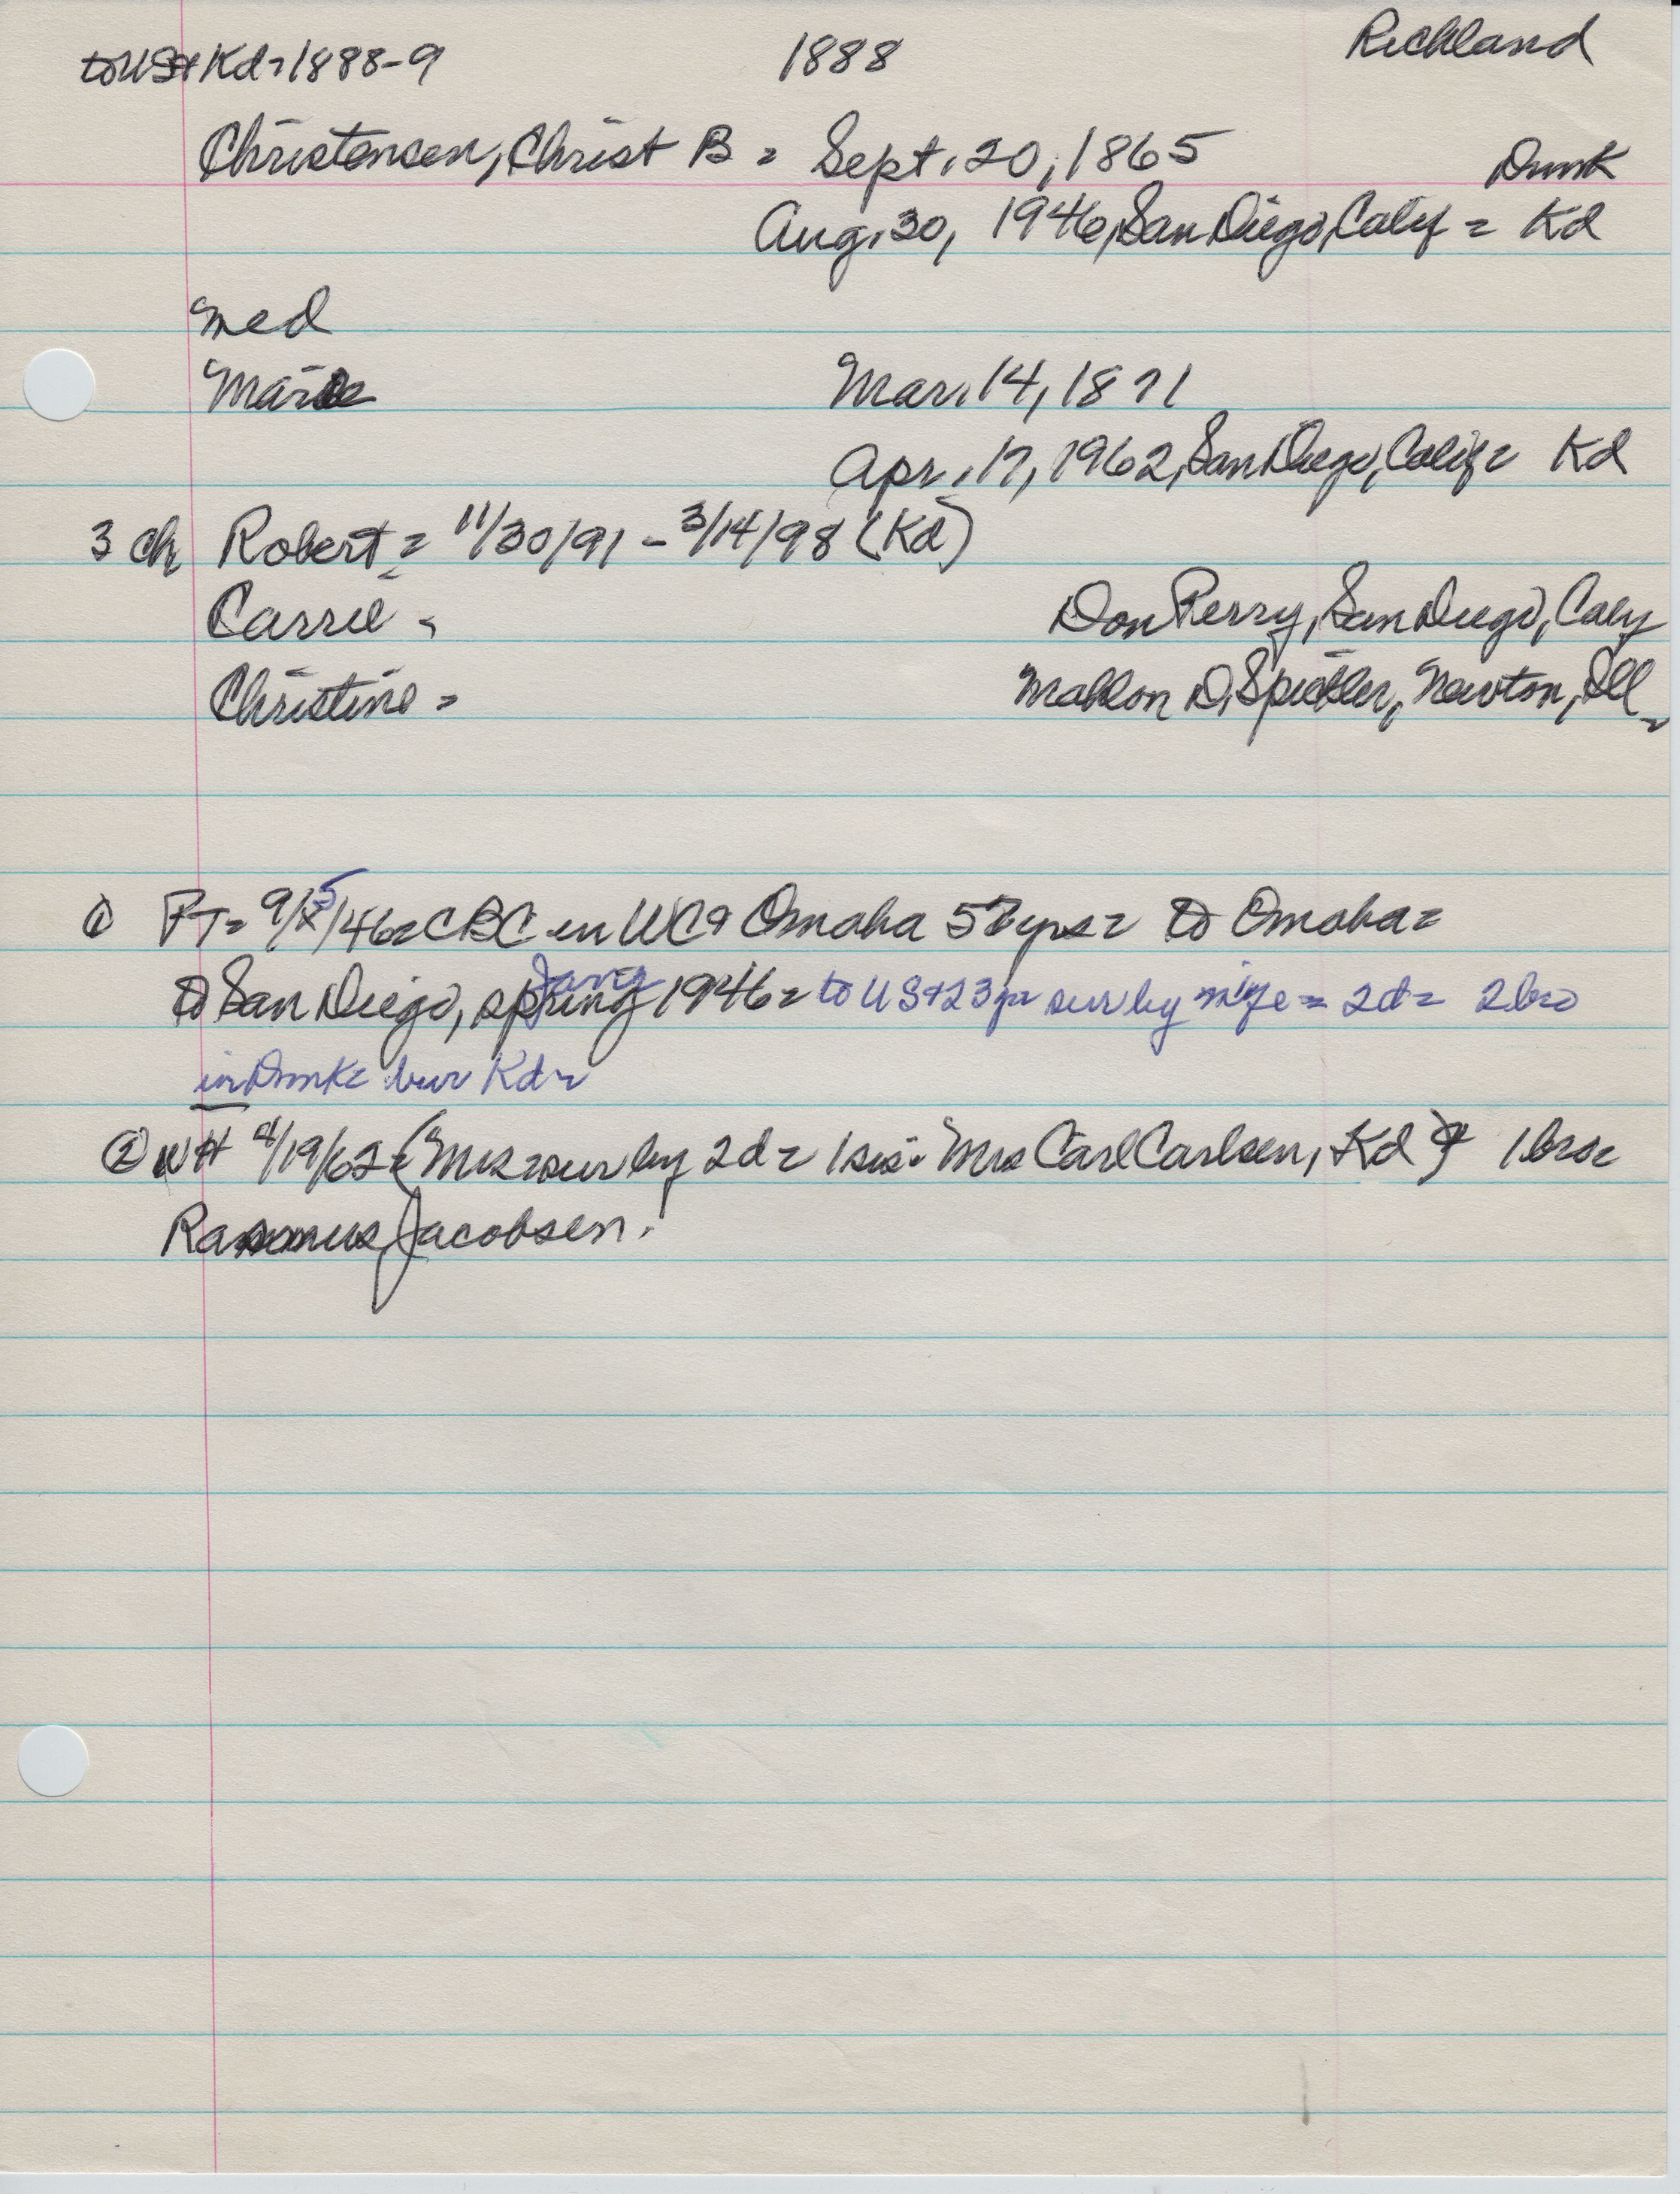 to US & Kd = 1888-9 1888 Richland
Christensen, Christ B = Sept. 20, 1865 Dmk
Aug. 30, 1946, San Diego, Calif = Kd
med
Marie Mar. 14, 1871
Apr. 17, 1962, San Diego, Calif = Kd
3 ch Robert = 11/30/91 - 3/14/98 (Kd)
Carrie = Don Perry, San Diego, Calif
Christine = Mahlon D. Spickler, Newton, Ill
① PT = 9/5/46 = CBC in WC & Omaha 57 yrs = to Omaha =
to San Diego, spring Jany 1946 = to US + 23 yr sur by wife = 2d = 2 bro
in Dmk = bur Kd =
② WH 4/19/62 = (Mrs = sur by 2d = 1 sis: Mrs Carl Carlsen, Kd) & 1 bro =
Rasmus Jacobsen.